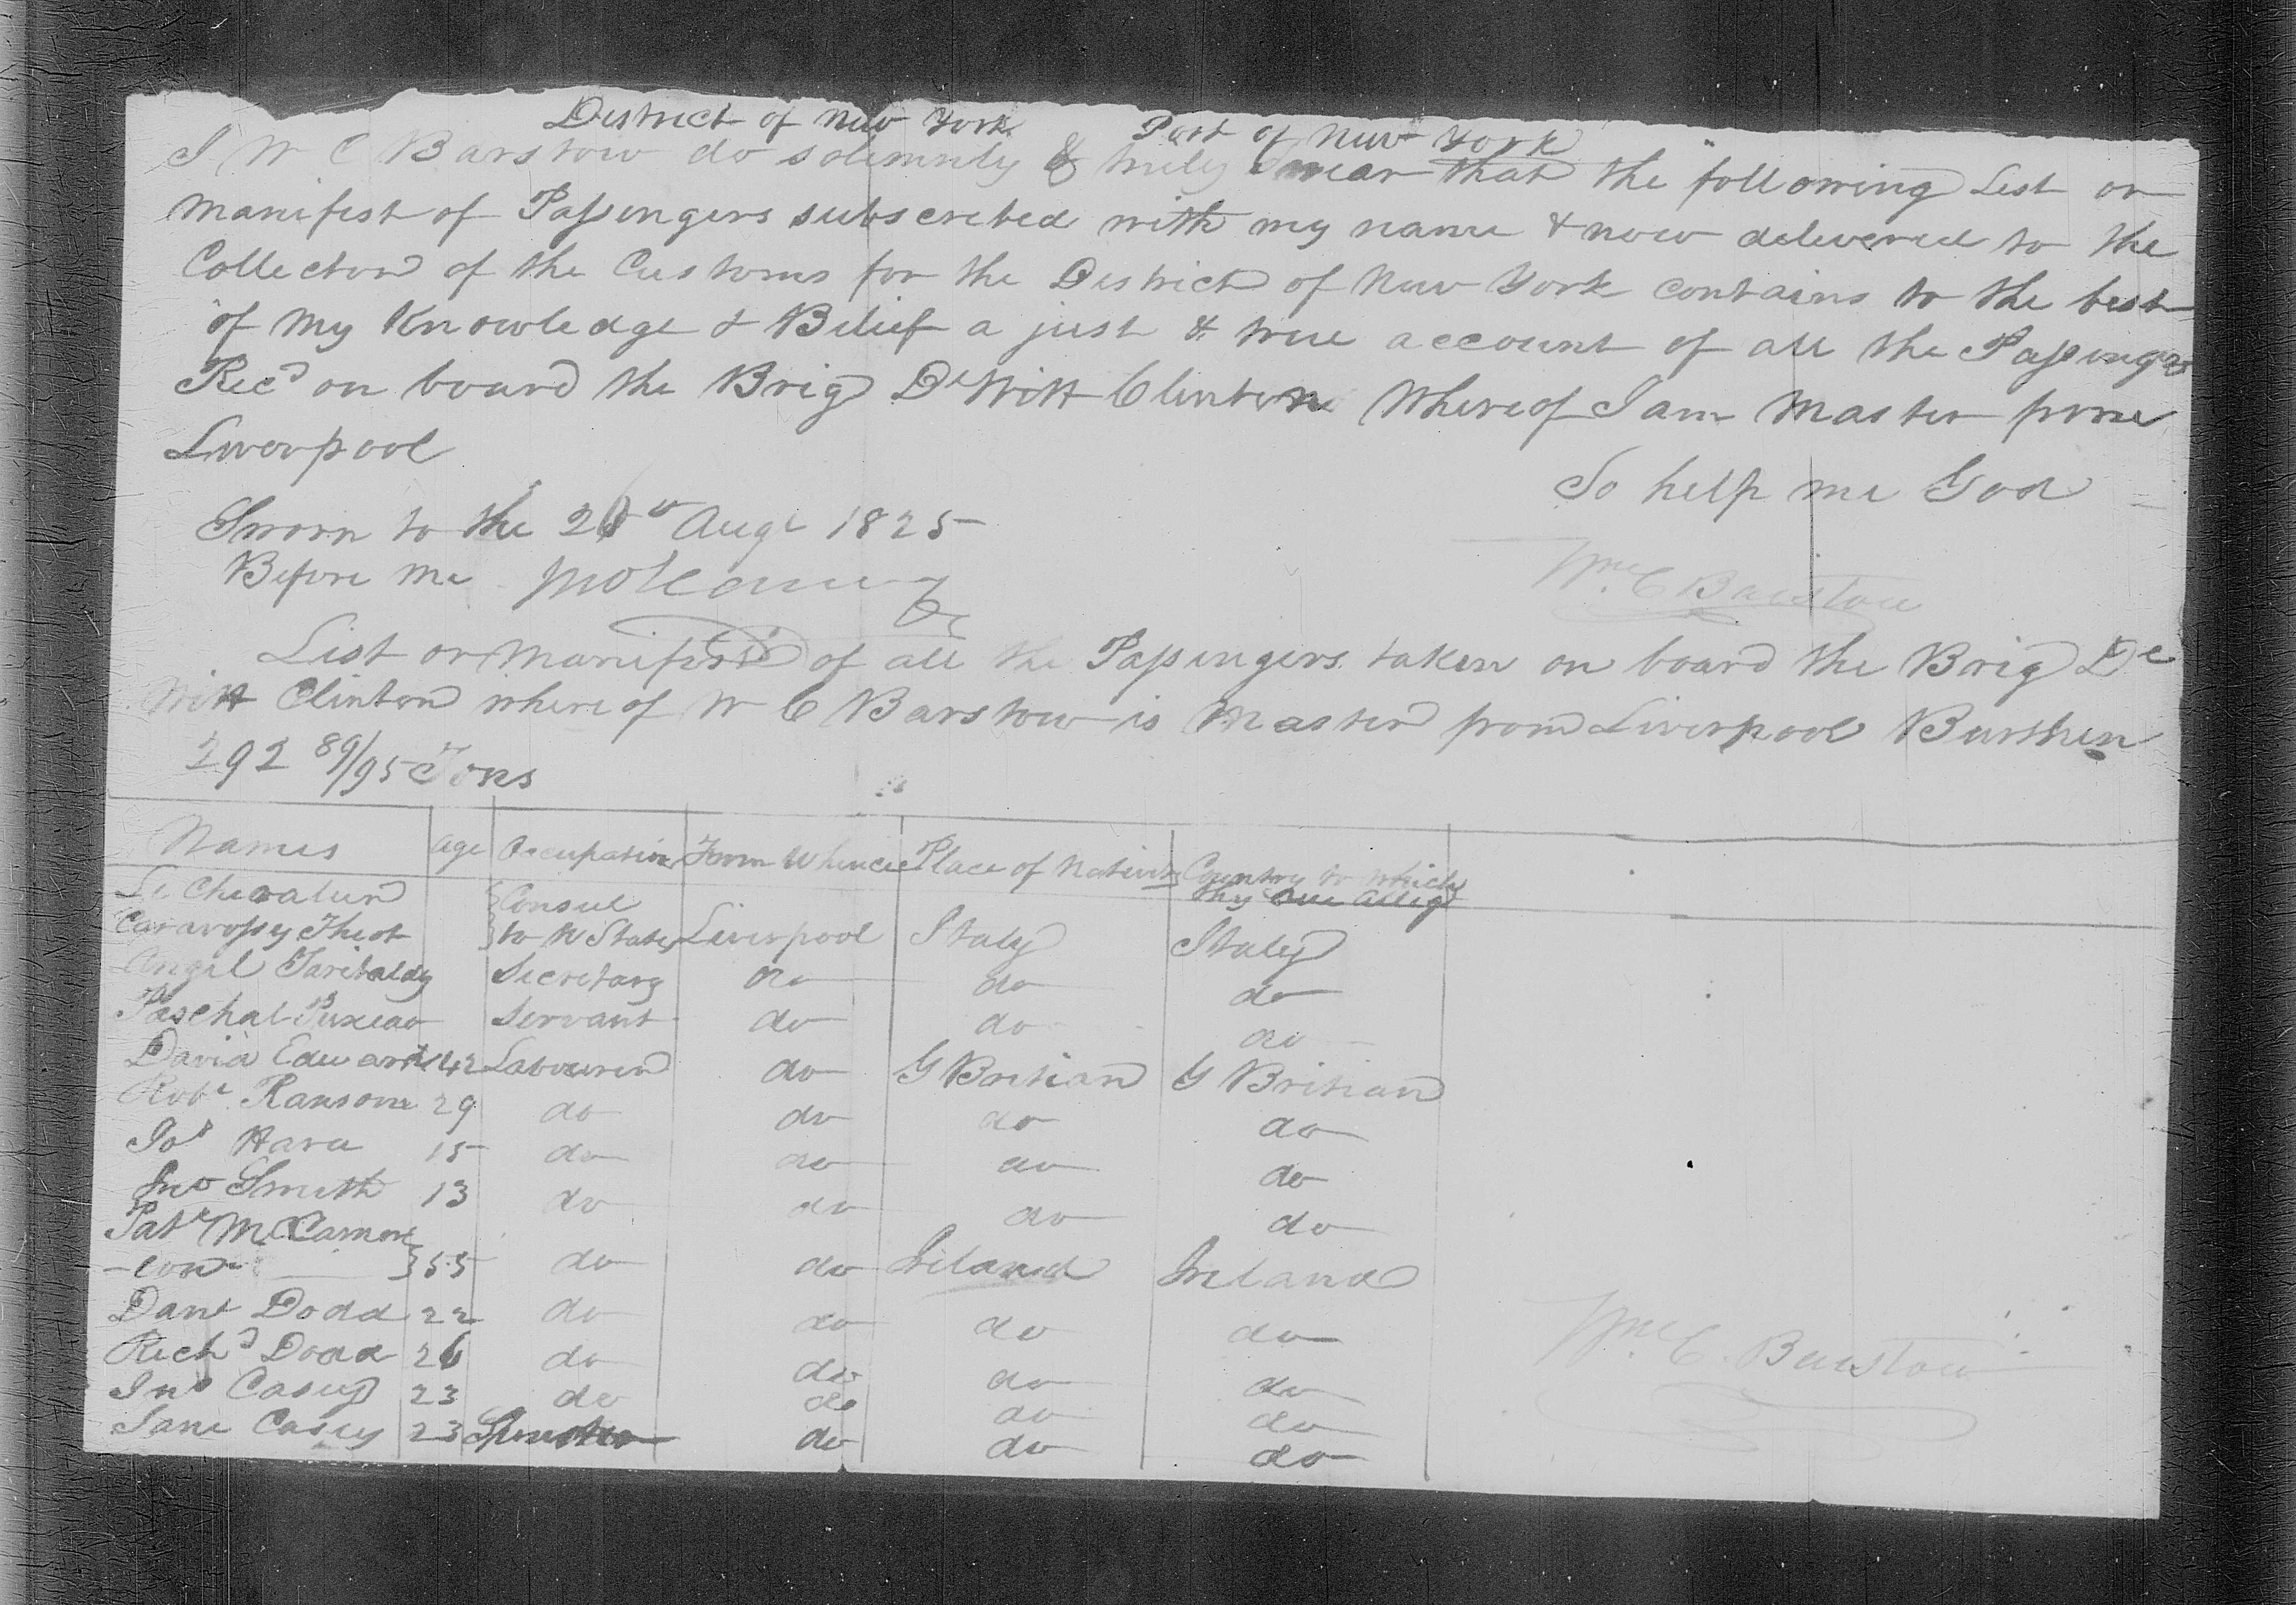 District of New York Port of New York
I W C Barstow do solemnly & truly Swear that the following List or
Manifest of Passengers subscribed with my name & now delivered to the
Collector of the Customs for the District of New York contains to the best
of my Knowledge & Belief a just & true account of all the Passengers
Recd on board the Brig De Witt Clinton Whereof I am Master from
Liverpool
So help me God
Sworn to the Augt 1825
Wm C Barstow
Before me
List or Manifest of all the Passengers taken on board the Brig De
Witt Clinton where of W C Barstow is Master from Liverpool Burthen
292 89/95 Tons
Names Age Occupation From Whence Place of Nativity Country to which
they owe Alleg
Le Chevalier Consul
to U States Liverpool Italy Italy
Angel Garibaldy Secretary do do do
Paschal Servant do do do
David Edwards 42 Labourer do G Britian G Britian
Robt Ransome 29 do do do do
Jos Hara 15 do do do do
Jno Smith 13 do do do do
Patk McCamer
-on 55 do do Ireland Ireland
Danl Dodd 22 do do do do
Richd Dodd 26 do do do do
Jno Casey 23 do do do do
Jane Casey 23 Spinster do do do
Wm C. Barstow